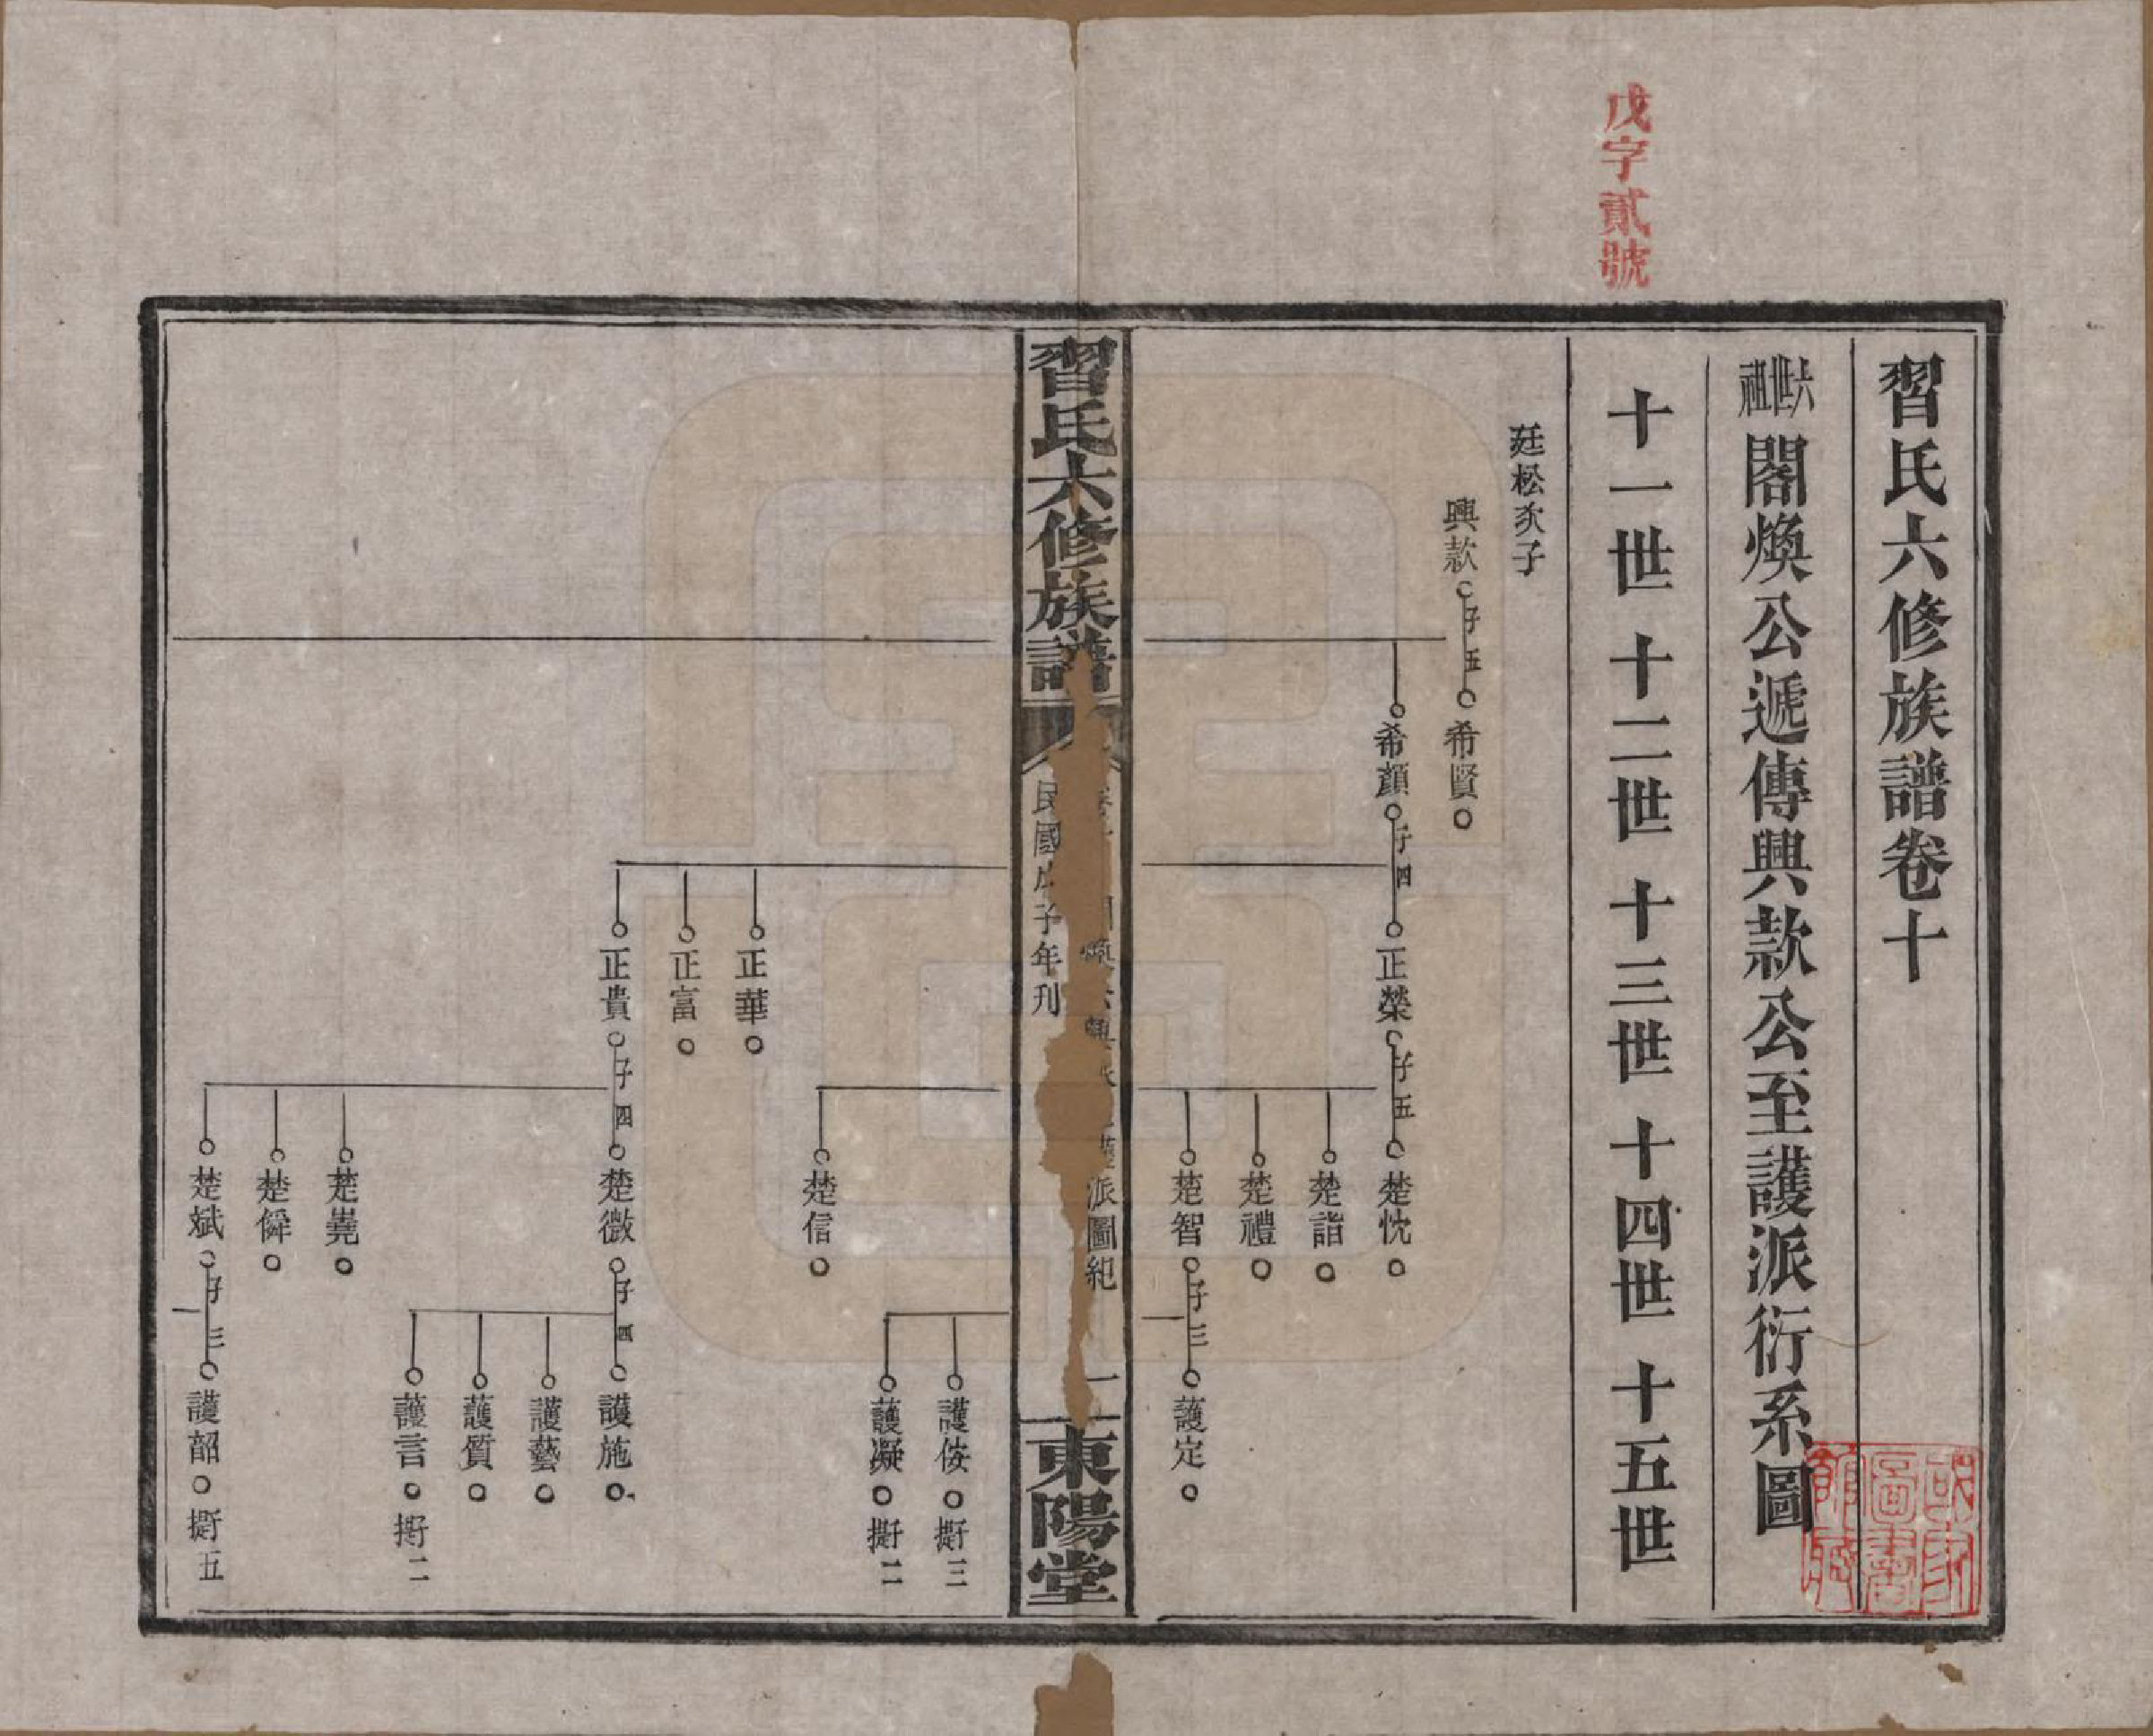 戊字貳號
習氏六修族譜卷十
六世祖
閣煥公遞傳興款公至護派衍系圖
十一世 十二世 十三世 十四世 十五世
廷松次子
興款 子五 希賢
希顏 子四 正榮 子五 楚忱
楚詣
楚禮
楚智 子三 護定
習氏六修族譜
煥公興 護派圖紀
一
東陽堂
民國戊子年刊
護侒 子三
護凝 子二
楚信
正華
正富
正貴 子四 楚微 子四 護施
護藝
護質
護言 子二
楚嶤
楚僢
楚斌 子三 護韶 子五
國家圖書館藏